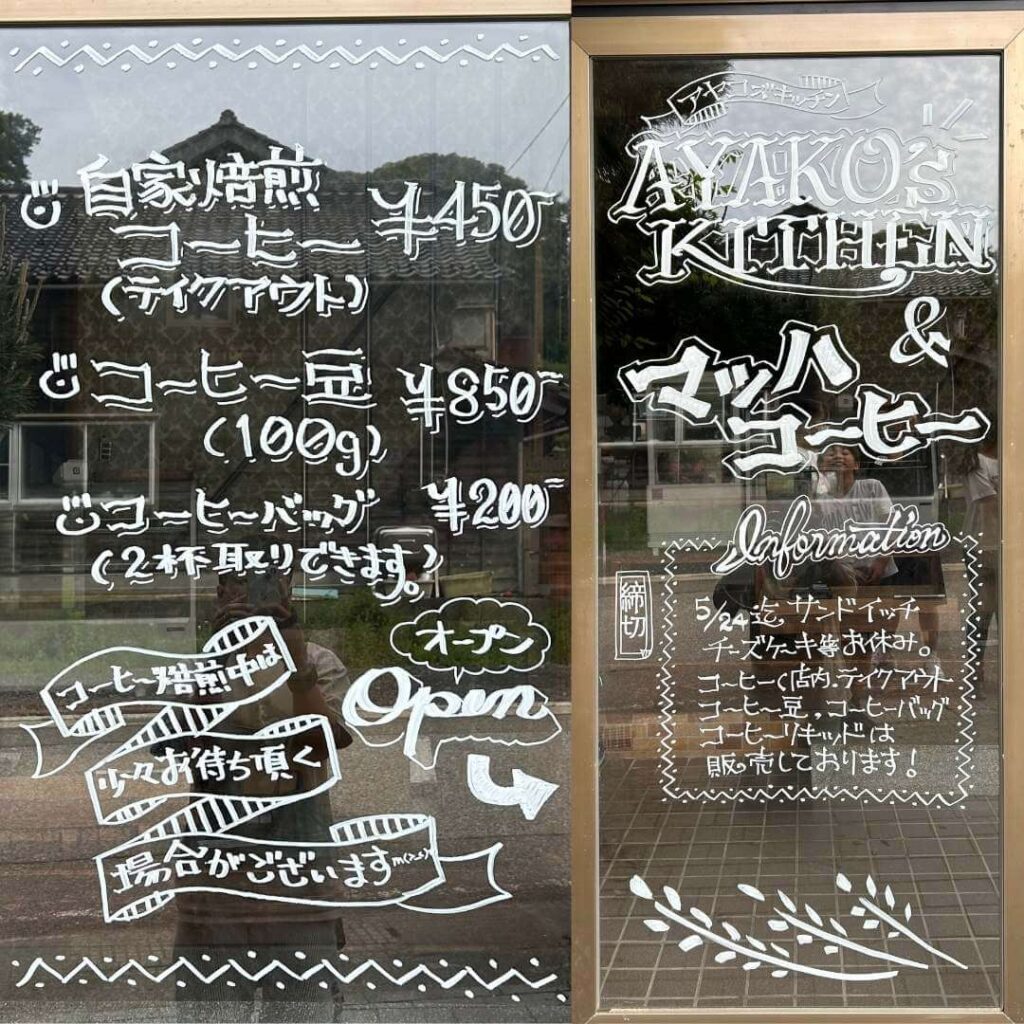 自家焙煎
コーヒー ¥450-
(テイクアウト)
コーヒー豆 ¥850-
(100g)
コーヒーバッグ ¥200-
(2杯取りできます。)
オープン
Open
コーヒー焙煎中は
少々お待ち頂く
場合がございます
アヤコズキッチン
AYAKO's
KITCHEN
&
マッハ
コーヒー
Information
締切
5/24迄 サンドイッチ
チーズケーキ等お休み。
コーヒー(店内・テイクアウト
コーヒー豆,コーヒーバッグ
コーヒーリキッドは
販売しております!